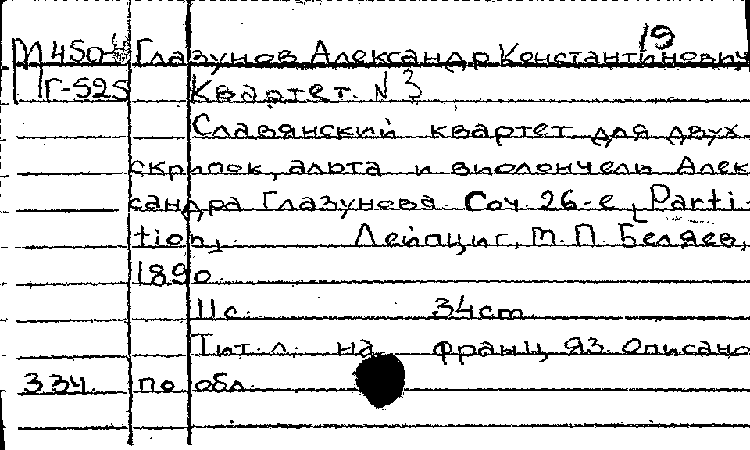 19
М 450-4 Глазунов Александр Константинович
Г-525 Квартет. N 3
Славянский квартет для двух
скрипок, альта и виолончели Алек
сандра Глазунова. Соч. 26-е, Parti-
tion, Лейпциг, М. П. Беляев,
1890.
11 с. 34cm
Тит. л. на франц. яз. Описано
334. по обл.